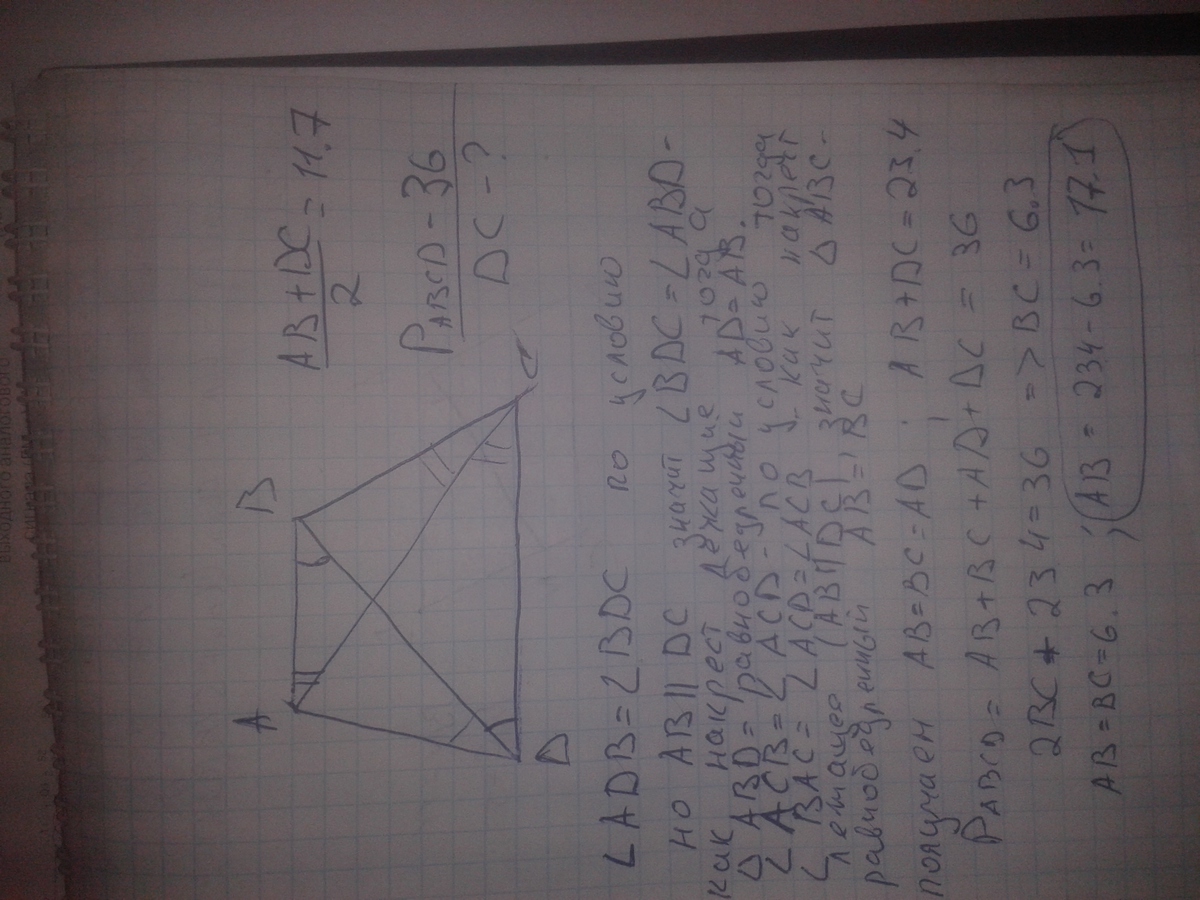 выходного аналогового
A
B
C
D
AB+DC
2
= 11.7
PABCD - 36
DC - ?
∠ADB = ∠BDC по условию
но AB || DC значит ∠BDC = ∠ABD -
как накрест лежащие тогда
△ABD = равнобедренный AD = AB.
∠ACB = ∠ACD - по условию тогда
∠BAC = ∠ACD = ∠ACB как накрест
лежащее (AB || DC) значит △ABC -
равнобедренный AB = BC
получаем AB = BC = AD; AB + DC = 23.4
PABCD = AB + BC + AD + DC = 36
2BC + 23 4 = 36 => BC = 6.3
AB = BC = 6.3; AB = 23.4 - 6.3 = 17.1